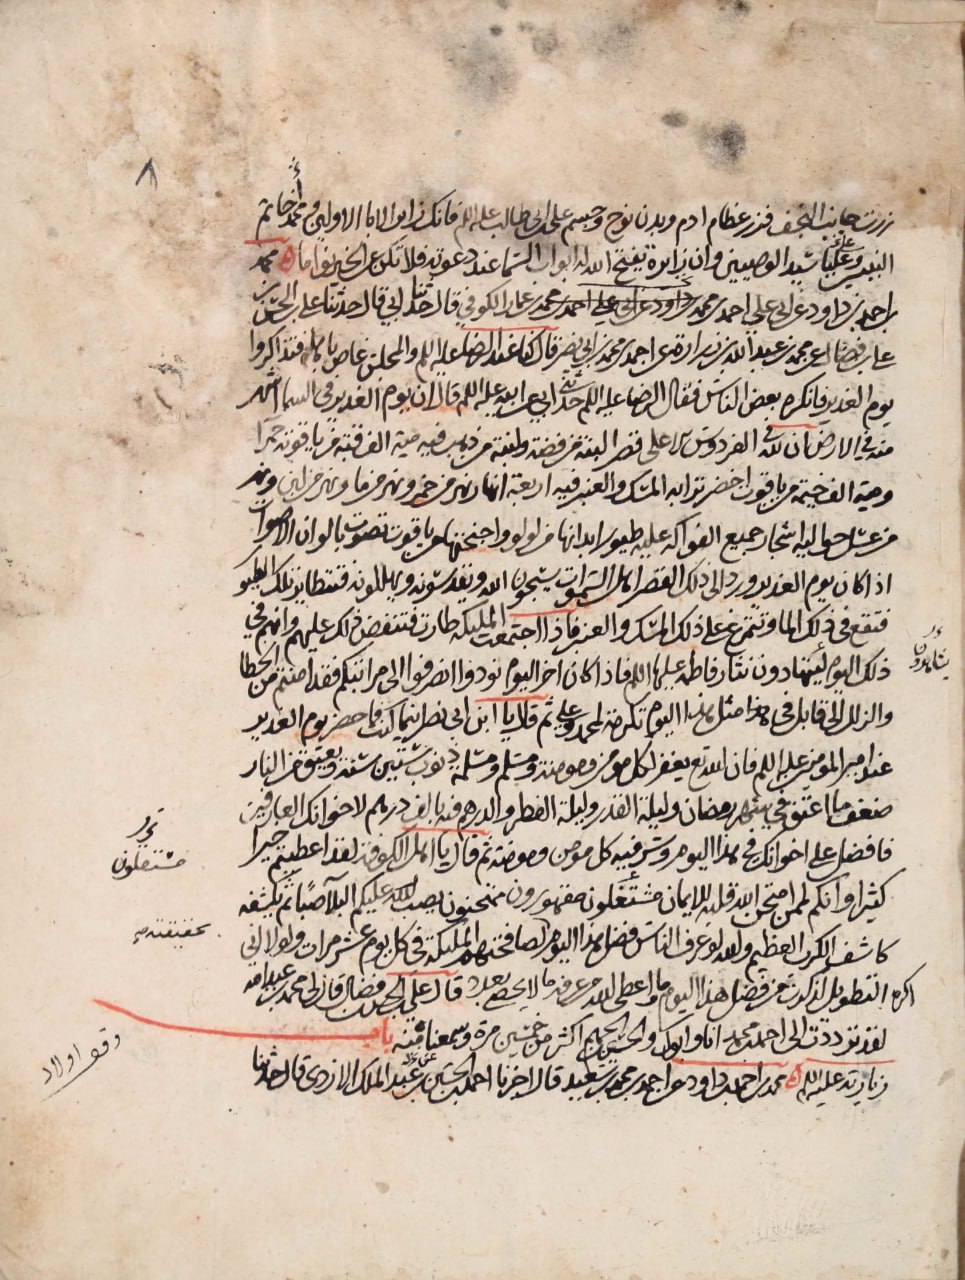 ٨
زرت جانب النجف فزر عظام ادم وبدن نوح وجسم علي بن ابي طالب عليه السلم فانك زاير الاباء الاولين ومحمدا خاتم
النبيين وعليا سيد الوصيين وان زايره تفتح الله له ابواب السما عند دعوته فلا تكن عن الخير نواما محمد
بن احمد بن داود عن ابي علي احمد بن محمد بن عمار الكوفي قال حدثنا ابي قال حدثنا علي بن الحسن بن
علي بن فضال عن محمد بن عبد الله بن زرارة عن احمد بن محمد بن ابي نصر قال كنا عند الرضا عليه السلم والمجلس غاص باهله فتذاكروا
يوم الغدير فانكره بعض الناس فقال الرضا عليه السلم حدثني ابي عن ابيه عليه السلم قال ان يوم الغدير في السما اشهر
منه في الارض ان لله في الفردوس الاعلى قصرا لبنة من فضة ولبنة من ذهب فيه مية الف قبة من ياقوتة حمرا
ومية الف خيمة من ياقوت اخضر ترابه المسك والعنبر فيه اربعة انهار نهر من خمر ونهر من ما ونهر من لبن ونهر
من عسل حواليه اشجار جميع الفواكه عليه طيور ابدانها من لولو واجنحتها من ياقوت تصوت بالوان الاصوات
اذا كان يوم الغدير ورد الى ذلك القصر اهل السموات يسبحون الله ويقدسونه ويهللونه فتتطاير تلك الطيور
فتقع في ذلك الما وتتمرغ على ذلك المسك والعنبر فاذا اجتمعت المليكة طارت فتنفض ذلك عليهم وانهم في
ذلك اليوم ليتهادون نثار فاطمة عليها السلم فاذا كان اخر اليوم نودوا انصرفوا الى مراتبكم فقد امنتم من الخطا
والزلل الى قابل في مثل هذا اليوم تكرمة لمحمد وعلي ثم قال يا ابن ابي نصر اينما كنت فاحضر يوم الغدير
عند امير المومنين عليه السلم فان الله تع يغفر لكل مومن ومومنة ومسلم ومسلمة ذنوب ستين سنة ويعتق من النار
ضعف ما اعتق في شهر رمضان وليلة القدر وليلة الفطر والدرهم فيه بالف درهم لاخوانك العارفين
فافضل على اخوانك في هذا اليوم وسر فيه كل مومن ومومنة ثم قال يا اهل الكوفة لقد اعطيتم خيرا
كثيرا وانكم لممن امتحن الله قلبه للايمان مستقلون مقهورون ممتحنون يصب عليكم البلا صبا ثم يكشفه
كاشف الكرب العظيم والله لو عرف الناس فضل هذا اليوم لصافحتهم المليكة في كل يوم عشر مرات ولولا اني
اكره التطويل لذكرت من فضل هذا اليوم وما اعطى الله من عرفه ما لا يحصى بعدد قال علي بن الحسن بن فضال قال لي محمد بن عبد الله
لقد ترددت الى احمد بن محمد انا وابوك والحسن بن الجهم اكثر من خمسين مرة وسمعنا منه باب
زيارته عليه السلم محمد بن احمد بن داود عن احمد بن محمد بن سعيد قال اخبرنا احمد بن الحسين بن عبد الملك الازدي قال حدثنا
مستقلون
بحقيقته
وقف اولاد